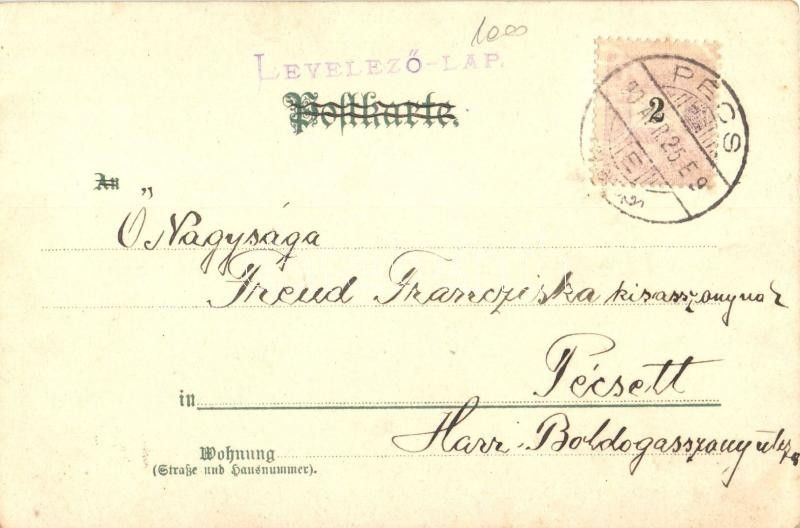 1000
LEVELEZŐ-LAP.
Postkarte.
2
PÉCS
An
Ő Nagysága
Freud Francziska kisasszonynak
in Pécsett
Wohnung
(Straße und Hausnummer).
Harr. Boldogasszony utcza